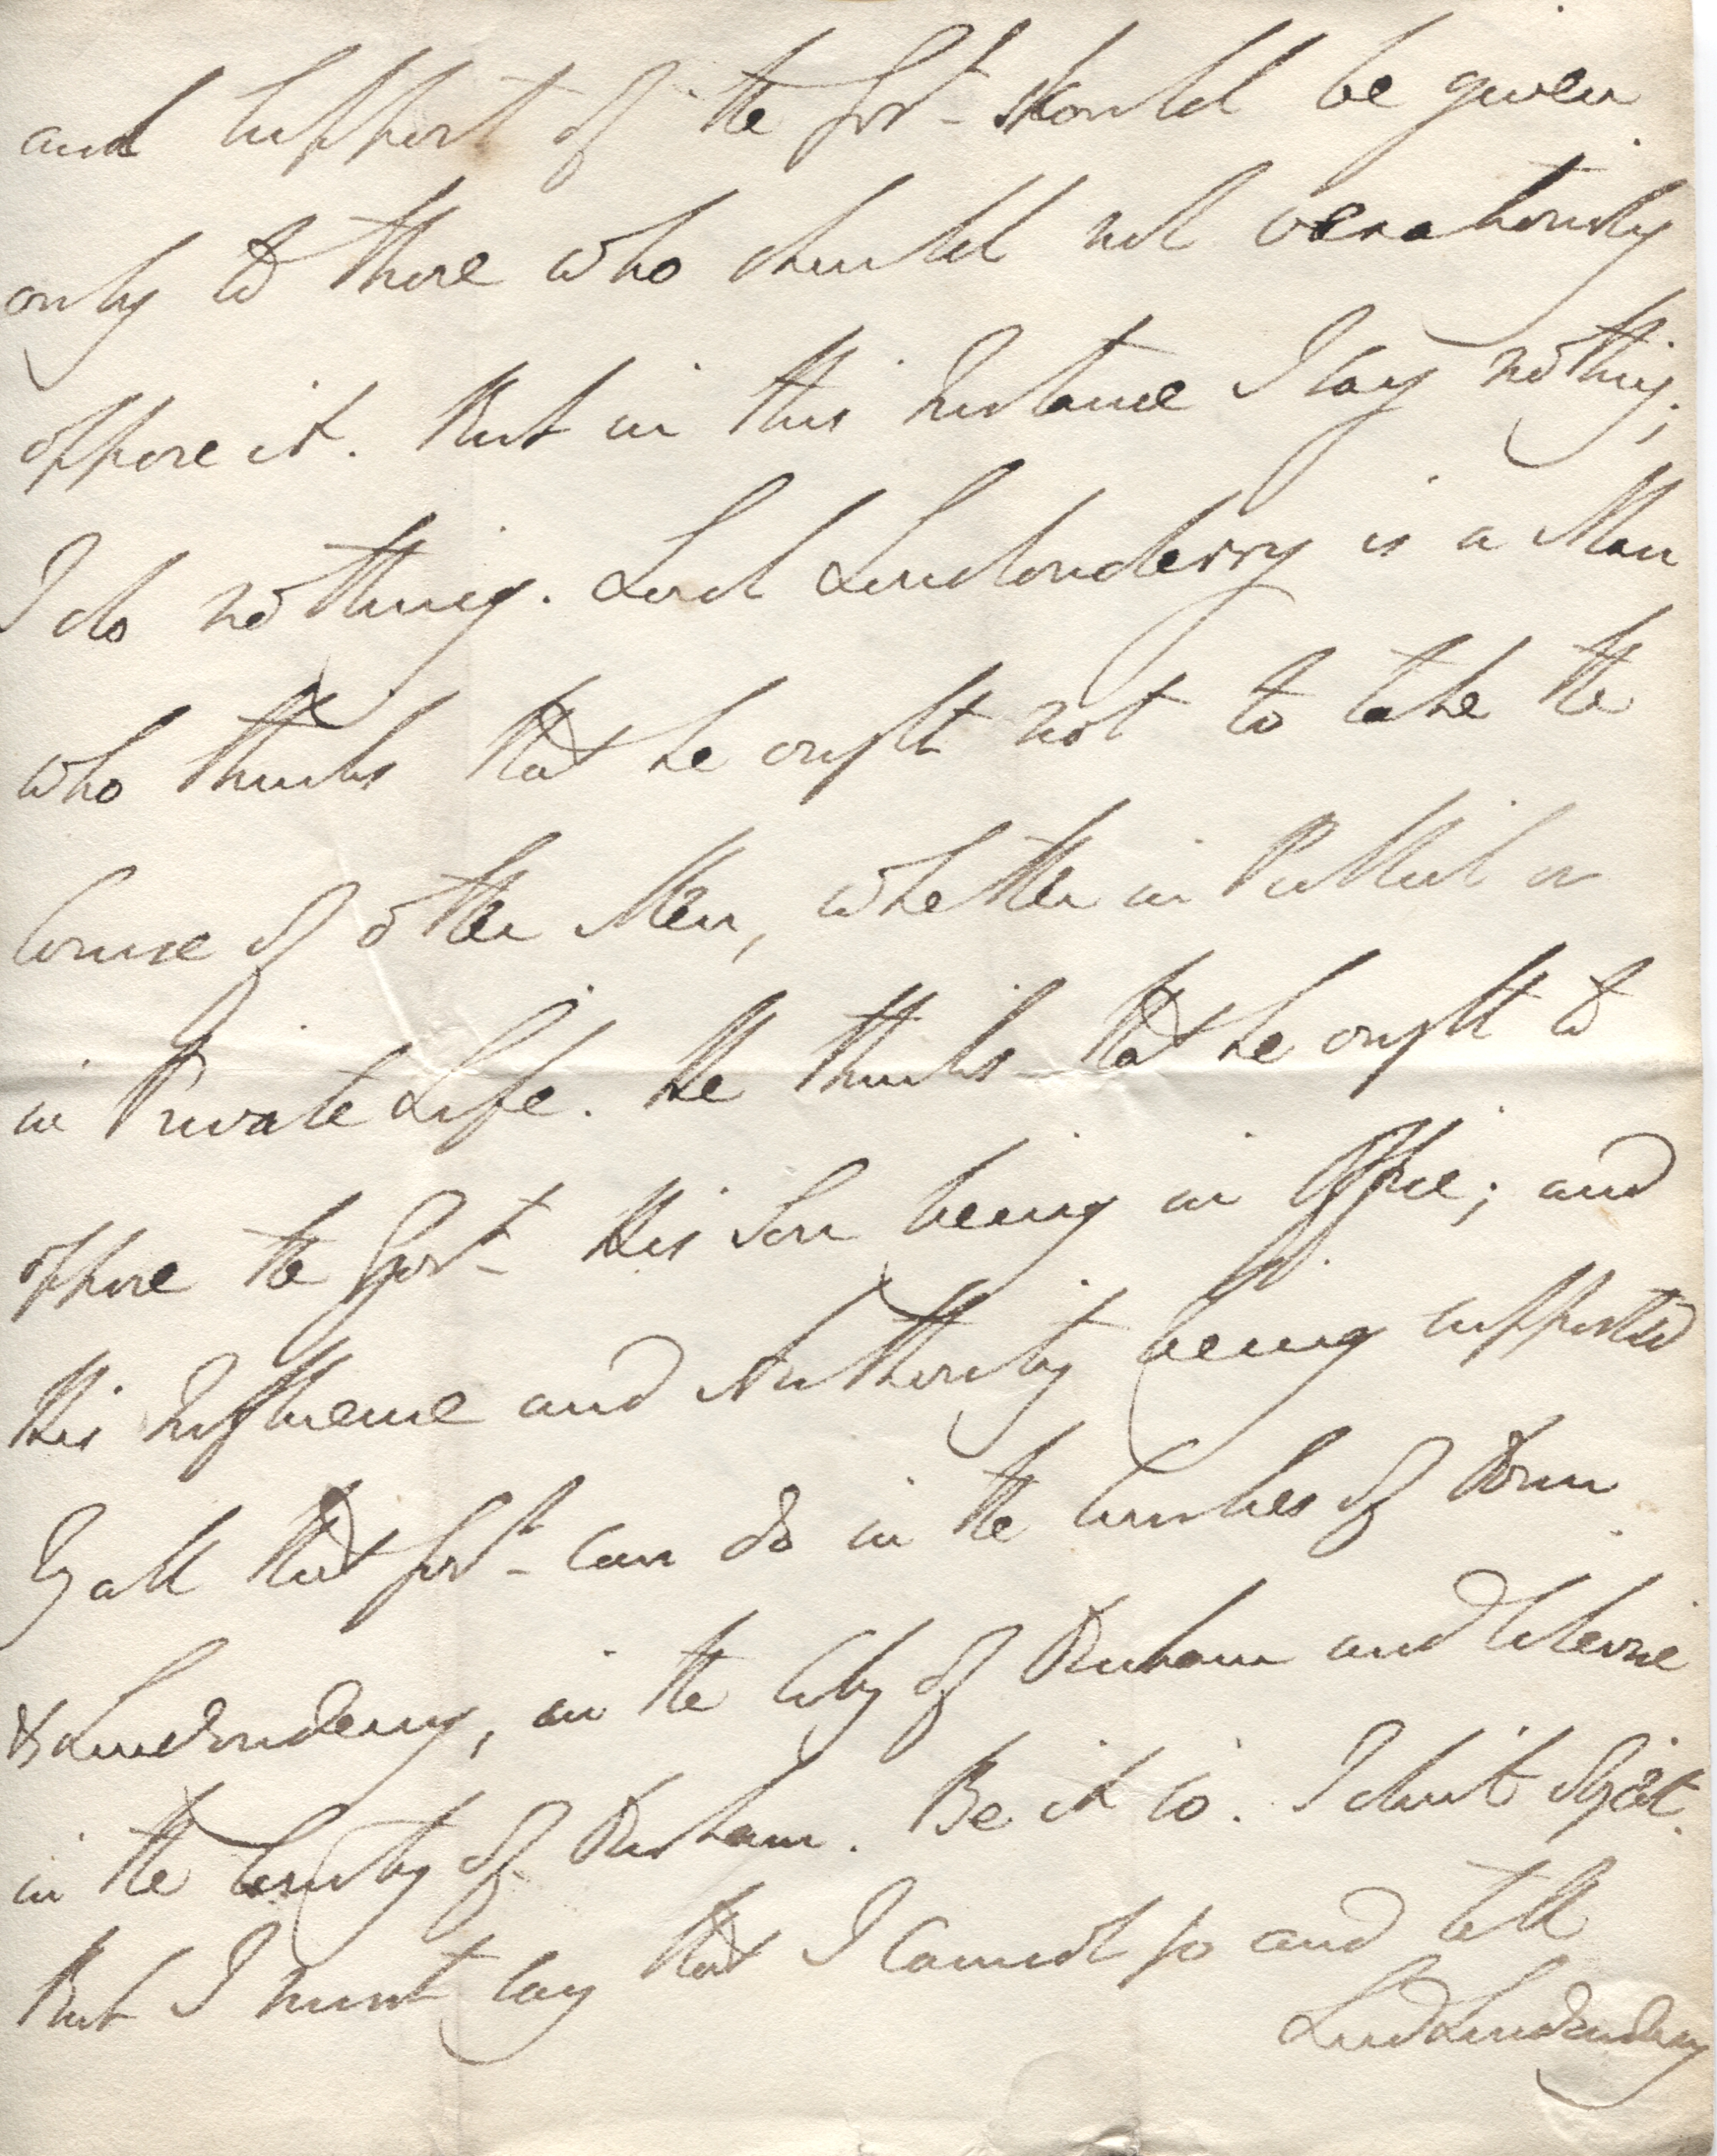 and support of the Govt should be given
only to those who should not vexatiously
oppose it. But in this Instance I say nothing;
I do nothing. Lord Londonderry is a Man
who thinks that he ought not to take the
Course of other Men, whether in Publick or
in Private Life. He thinks that he ought to
oppose the Govt His Son being in Office; and
His Influence and Authority being supported
by all that Govt can do in the Counties of Down
& Londonderry, in the City of Durham and
in the County of Durham. Be it so. I don't object.
But I must say that I cannot go and tell
Lord Londonderry